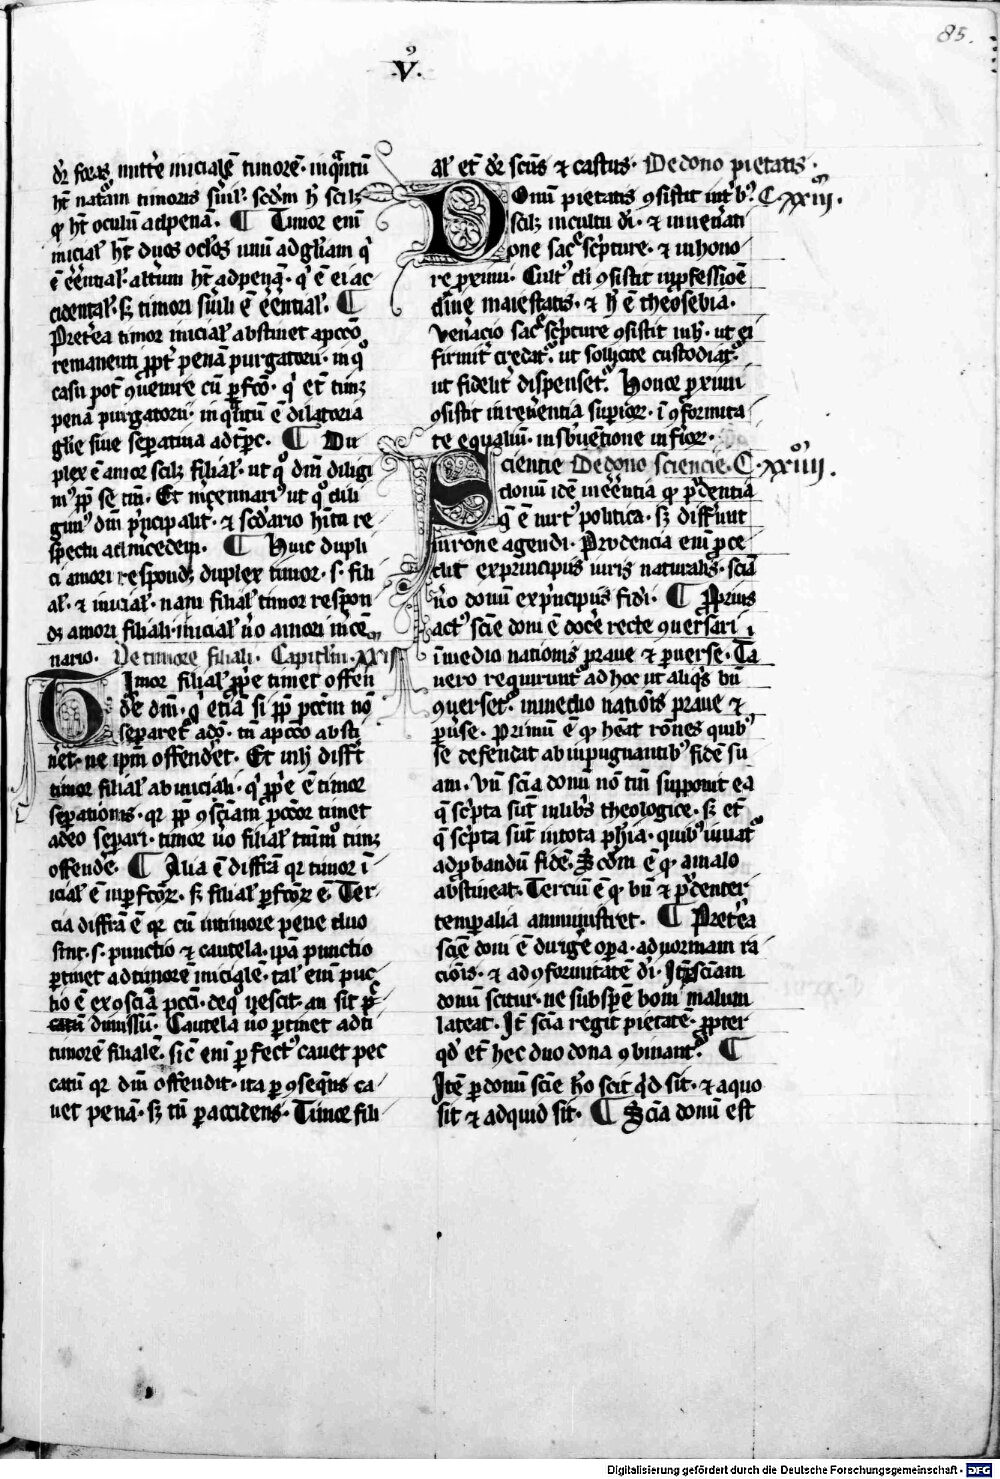 85.
.V⁹.
dr̄ foras mitte̾ inicialē timorē· inq̄ntū
ht̄ natāꝫ timoris s̾uil'· sc̄dm h̾ scilꝫ
ꝙ ht̄ oculū ad penā· ¶ Timor eni̅
inicial' ht̄ duos oc̾los unū ad gl̾iam q̾
ē eēntial'· alt̾um ht̄ ad penā· q̾ ē ei ac
cidental'· sꝫ timori s̾uili ē eēntial'· ¶
Pret̾ea timor inicial' abstinet a pccō
remanenti ꝓpt̾ penā purgatorii· in qͦ
casu pot̄ ꝯuenire cū ꝑfcō· q̾ et̄ timꝫ
penā purgatorii· inq̄ntū ē dilatoria
glīe siue seꝑatiua ad tꝑc· ¶ Du
plex ē amor scilꝫ filial'· ut qͦ dm̄ diligi
mꝰ ꝓp̄ se tm̄· Et m̾cennariꝰ ut qͦ dili
gimꝰ dm̄ p̾ncipalit̾· ⁊ sc̄dario h̾itu re
spectu ad m̾cedem· ¶ Huic dupli
ci amori respondꝫ duplex timor· s· fili
al'· ⁊ inicial'· nam filial' timor respon
dꝫ amori filiali· inicial' u̾o amori m̾cēn
nario· De timore filiali· Capitlm̄ ·xxii
Timor filial' ꝓp̾e timet offen
d̾e dm̄· q̾ etiā si ꝓp̄ pccm̄ nō
separet᷑ a dō· tn̄ a pccō absti
n̾et· ne ipm̄ offend̾et· Et in h̾ diff̾t
timor filial' ab iniciali· q̾ ꝓp̾e ē timor
seꝑationis· qr ꝓp̄ ꝯsc̾iam pccōr timet
a deo separi· timor u̾o filial' tm̄mͦ timꝫ
offend̾e· ¶ Alia ē diffrā qr timor i̅
icial' ē inꝑfcōr· sꝫ filial' ꝑfcōr ē· Ter
cia diffrā ē qr cū in timore pene duo
sint· s· punctio ⁊ cautela· ipā punctio
ꝑtinet ad timorē inicialē· tal' eni̅ puc
tio ē ex ꝯsciā pcci· de qͦ nescit· an sit pc̄
catū dimissū· Cautela u̾o ꝑtinet ad ti
timorē filialē· sic̄ eni̅ ꝑfectꝰ cauet pec
catū qr dm̄ offendit· ita ꝑ ꝯseq̾ns ca
uet penā· sꝫ tn̄ ꝑ accidens· Timor fili
al' et̄ dr̄ scūs ⁊ castus· De dono pietatis·
Donū pietatis ꝯsistit in t'bꝰ· C·xxiii·
scilꝫ in cultu di̅· ⁊ in uen̾ati
one sac̾ sc̾pture· ⁊ in hono
re ꝓximi· Cultꝰ di̅ ꝯsistit in ꝓfessioē
diu̾ne maiestatis· ⁊ h̾ ē theosebia·
Ven̾acio sac̾ sc̾pture ꝯsistit in h̾· ut ei
firmit̾ credat᷑· ut sollicite custodiat᷑·
ut fidelit̾ dispenset᷑· Honor ꝓximi
ꝯsistit in reu̾entia superior᷑· i̅ ꝯformita
te equaliū· in sbuētione inf̾ior·
Scientie De dono sciencie· C·xxiiii·
donū idē in eēntia ꝙ p̾dentia
q̄ ē uirtꝰ politica· sꝫ diff̾unt
in rōne agendi· Prudencia eni̅ ꝓce
dit ex principiis iuris naturalis· sciā
u̾o donū ex p̾ncipiis fidi· ¶ Ꝓprius
actꝰ scīe doni ē doc̾e recte ꝯuersari i
i̅ medio nationis praue ⁊ ꝑuerse· T̾a
uero requirunt᷑ ad hoc ut aliq̾s bn̄
ꝯuerset᷑· in medio natiōis praue ⁊
ꝑu̾se· Primū ē ꝙ h̾eat rōnes quibꝰ
se defendat ab inpugnantibꝰ fidē su
am· Vn̄ sciā donū nō tm̄ supponit ea
q̄ sc̾pta sūt in lib̾s theologice· sꝫ et̄
q̄ sc̾pta sūt in tota ph̾ia· quibꝰ iuuat᷑
ad ꝓbandū fidē· Sc̄dm ē ꝙ a malo
abstineat· Terciū ē ꝙ bn̄ ⁊ p̾denter
temꝑalia amministret· ¶ Pret̾ea
scīe doni ē dirig̾e oꝑa· ad normam ra
ciōis· ⁊ ad ꝯformitatē di̅· It̄ ꝓ sciam
donū scitur· ne sub spē boni malum
lateat· It̄ sciā regit pietatē· ꝓpter
qd̾ et̄ hec duo dona ꝯbinant᷑· ¶
Itē ꝑ donū scīe h̾o scit qͥd sit· ⁊ a quo
sit ⁊ ad quid sit· ¶ Sciā donū est
Digitalisierung gefördert durch die Deutsche Forschungsgemeinschaft · DFG